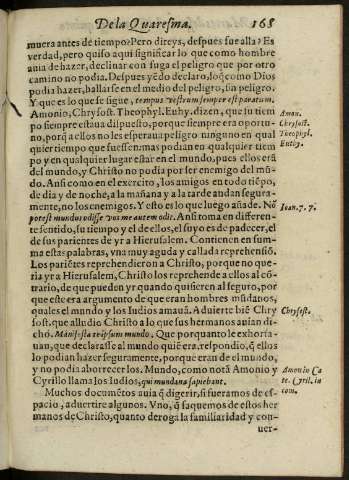 De la Quaresma. 168
muera antes de tiempo? Pero direys, despues fue alla? Es
verdad, pero quiso aqui significar lo que como hombre
auia de hazer, declinar con fuga el peligro que por otro
camino no podia. Despues yẽdo declaro, loq̃ como Dios
podia hazer, hallarse en el medio del peligro, sin peligro.
Y que es lo que se sigue, tempus vestrum semper est paratum.
Amonio, Chrysost. Theophyl. Euthy. dizen, que su tiem
po siempre estaua dispuesto, porque siempre era oportu-
no, porq̃ a ellos no les esperaua peligro ninguno en qual
quier tiempo que fuessen: mas podian en qualquier tiem
po y en qualquier lugar estar en el mundo, pues ellos erã
del mundo, y Christo no podia por ser enemigo del mũ-
do. Ansi como en el exercito, los amigos en todo tiẽpo,
de dia y de noche, a la mañana y a la tarde andan segura-
mente, no los enemigos. Y esto es lo que luego añade. Nõ
potest mundus odisse vos me autem odit. Ansi toma en differen-
te sentido, su tiempo y el de ellos, el suyo es de padecer, el
de sus parientes de yr a Hierusalem. Contienen en sum-
ma estas palabras, vna muy aguda y callada reprehensiõ.
Los pariẽtes reprehendieron a Christo, porque no que-
ria yr a Hierusalem, Christo los reprehende a ellos al cõ-
trario, de que pueden yr quando quisieren al seguro, por
que este era argumento de que eran hombres mũdanos,
quales el mundo y los Iudios amauã. Aduierte biẽ Chry
sost. que alludio Christo a lo que sus hermanos auian di-
cho. Manifesta teipsum mundo. Que por quanto le exhorta-
uan, que declarasse al mundo quiẽ era, respondio, q̃ ellos
lo podian hazer seguramente, porque eran de el mundo,
y no podia aborrecer los. Mundo, como notã Amonio y
Cyrillo llama los Iudios, qui mundana sapiebant.
Muchos documẽtos auia q̃ digerir, si fueramos de es-
pacio, aduertire algunos. Vno, q̃ saquemos de estos her
manos de Christo, quanto deroga la familiaridad y con-
uer-
Amon.
Chrysost.
Theophyl.
Euthy.
Ioan. 7. 7.
Chrysost.
Amonio Ca
te. Cyril. in
com.